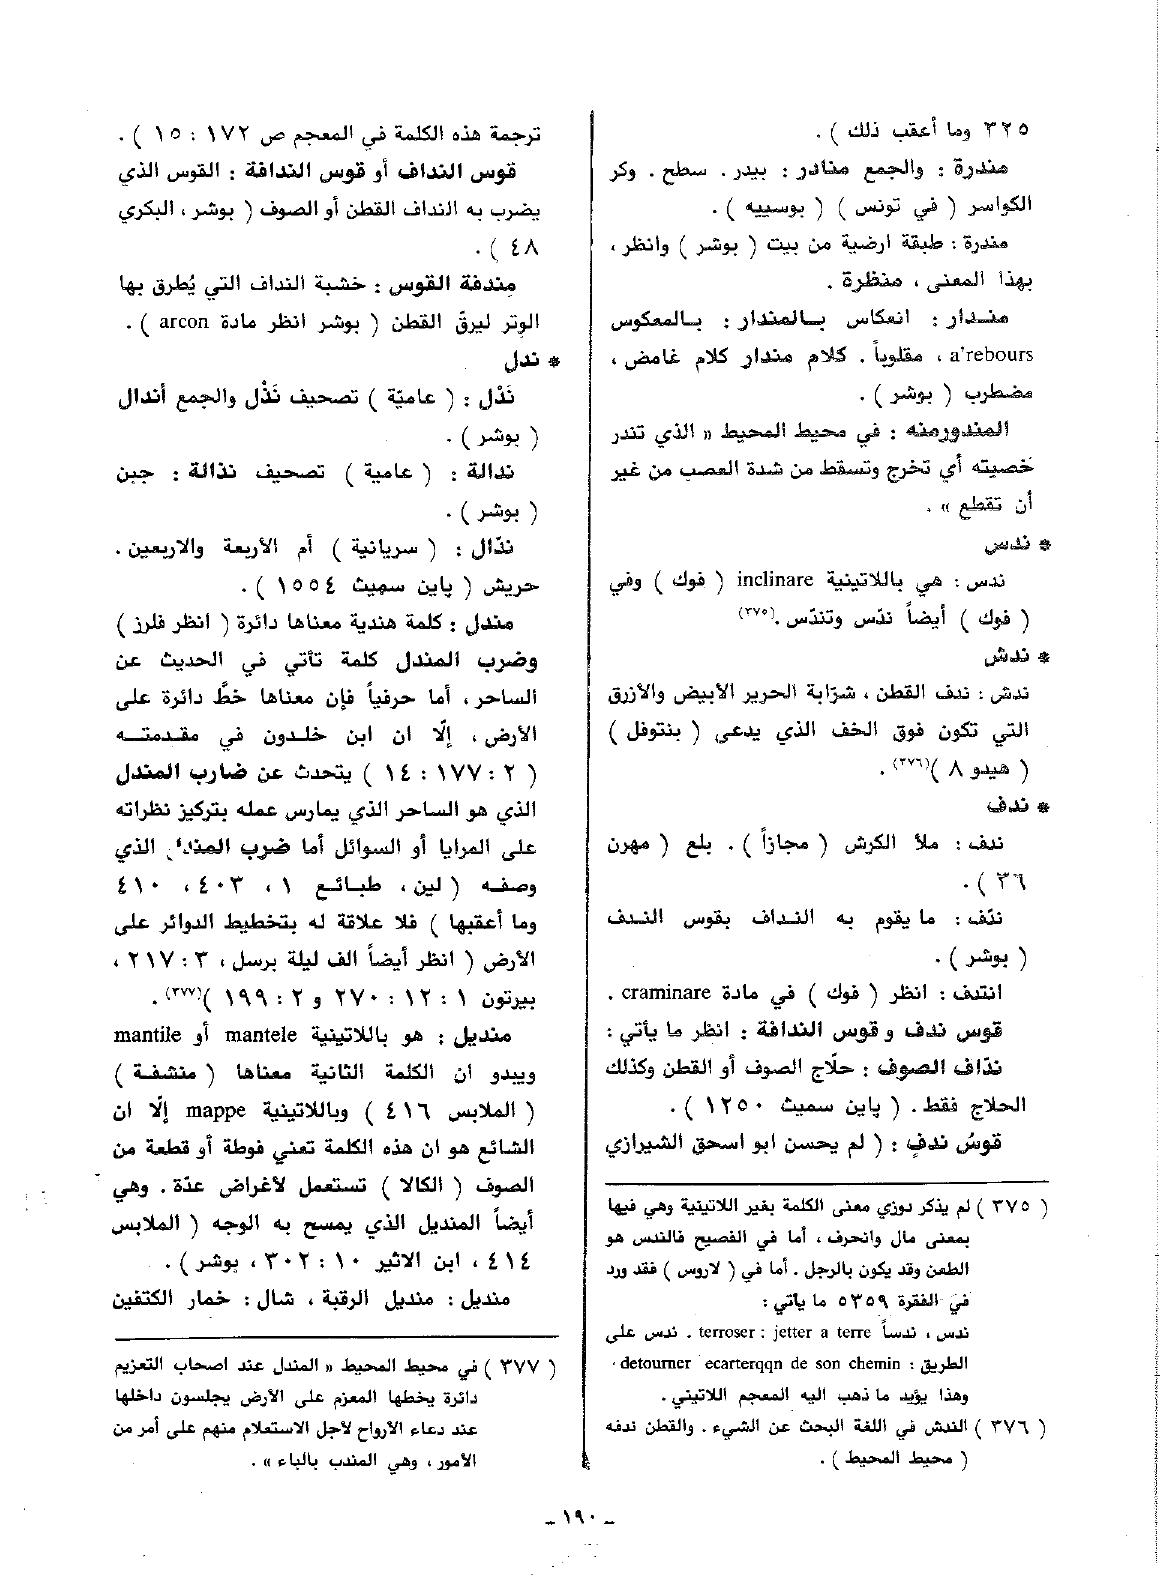 ٣٢٥ وما أعقب ذلك ) .
مندرة : والجمع منادر : بيدر . سطح . وكر
الكواسر ( في تونس ) ( بوسييه ) .
مندرة : طبقة ارضية من بيت ( بوشر ) وانظر ،
بهذا المعنى ، منظرة .
منـدار : انعكاس بـالمندار : بـالمعكوس
a'rebours ، مقلوباً . كلام مندار كلام غامض ،
مضطرب ( بوشر ) .
المندورمنه : في محيط المحيط « الذي تندر
خصيته أي تخرج وتسقط من شدة العصب من غير
أن تقطع » .
* ندس
ندس : هي باللاتينية inclinare ( فوك ) وفي
( فوك ) أيضاً ندّس وتندّس .(٣٧٥)
* ندش
ندش : ندف القطن ، شرّابة الحرير الأبيض والأزرق
التي تكون فوق الخف الذي يدعى ( بنتوفل )
( هيدو ٨ )(٣٧٦) .
* ندف
ندف : ملأ الكرش ( مجازاً ) . بلع ( مهرن
٣٦ ) .
ندّف : ما يقوم به النـداف بقوس النـدف
( بوشر ) .
انتدف : انظر ( فوك ) في مادة craminare .
قوس ندف و قوس الندافة : انظر ما يأتي :
ندّاف الصوف : حلّاج الصوف أو القطن وكذلك
الحلاج فقط . ( پاين سميث ١٢٥٠ ) .
قوسُ ندفٍ : ( لم يحسن ابو اسحق الشيرازي
( ٣٧٥ ) لم يذكر دوزي معنى الكلمة بغير اللاتينية وهي فيها
بمعنى مال وانحرف ، أما في الفصيح فالندس هو
الطعن وقد يكون بالرجل . أما في ( لاروس ) فقد ورد
في الفقرة ٥٣٥٩ ما يأتي :
ندس ، ندساً terroser : jetter a terre . ندس على
الطريق : detourner ecarterqqn de son chemin .
وهذا يؤيد ما ذهب اليه المعجم اللاتيني .
( ٣٧٦ ) الندش في اللغة البحث عن الشيء . والقطن ندفه
( محيط المحيط ) .
ترجمة هذه الكلمة في المعجم ص ١٧٢ : ١٥ ) .
قوس النداف أو قوس الندافة : القوس الذي
يضرب به النداف القطن أو الصوف ( بوشر ، البكري
٤٨ ) .
مِندفة القوس : خشبة النداف التي يُطرق بها
الوتر ليرقّ القطن ( بوشر انظر مادة arcon ) .
* ندل
نَدْل : ( عاميّة ) تصحيف نَذْل والجمع أندال
( بوشر ) .
ندالة : ( عامية ) تصحيف نذالة : جبن
( بوشر ) .
ندّال : ( سريانية ) أم الأربعة والاربعين .
حريش ( پاين سميث ١٥٥٤ ) .
مندل : كلمة هندية معناها دائرة ( انظر فلرز )
وضرب المندل كلمة تأتي في الحديث عن
الساحر ، أما حرفياً فإن معناها خطَّ دائرة على
الأرض ، إلّا ان ابن خلـدون في مقدمتـه
( ٢ : ١٧٧ : ١٤ ) يتحدث عن ضارب المندل
الذي هو الساحر الذي يمارس عمله بتركيز نظراته
على المرايا أو السوائل أما ضرب المندل الذي
وصفـه ( لين ، طبـائـع ١ ، ٤٠٣ ، ٤١٠
وما أعقبها ) فلا علاقة له بتخطيط الدوائر على
الأرض ( انظر أيضاً الف ليلة برسل ، ٣ : ٢١٧ ،
بيرتون ١ : ١٢ : ٢٧٠ و ٢ : ١٩٩ )(٣٧٧) .
منديل : هو باللاتينية mantele أو mantile
ويبدو ان الكلمة الثانية معناها ( منشفـة )
( الملابس ٤١٦ ) وباللاتينية mappe إلّا ان
الشائع هو ان هذه الكلمة تعني فوطة أو قطعة من
الصوف ( الكالا ) تستعمل لأغراض عدّة . وهي
أيضاً المنديل الذي يمسح به الوجه ( الملابس
٤١٤ ، ابن الاثير ١٠ : ٣٠٢ ، بوشر ) .
منديل : منديل الرقبة ، شال : خمار الكتفين
( ٣٧٧ ) في محيط المحيط « المندل عند اصحاب التعزيم
دائرة يخطها المعزم على الأرض يجلسون داخلها
عند دعاء الأرواح لأجل الاستعلام منهم على أمر من
الأمور ، وهي المندب بالباء » .
- ١٩٠ -